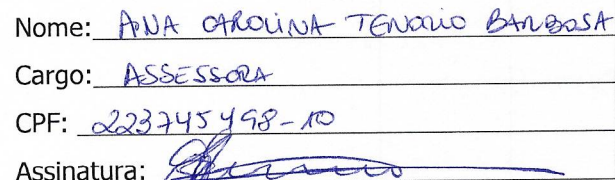 Nome: ANA CAROLINA TENORIO BARBOSA
Cargo: ASSESSORA
CPF: 223745498-10
Assinatura: